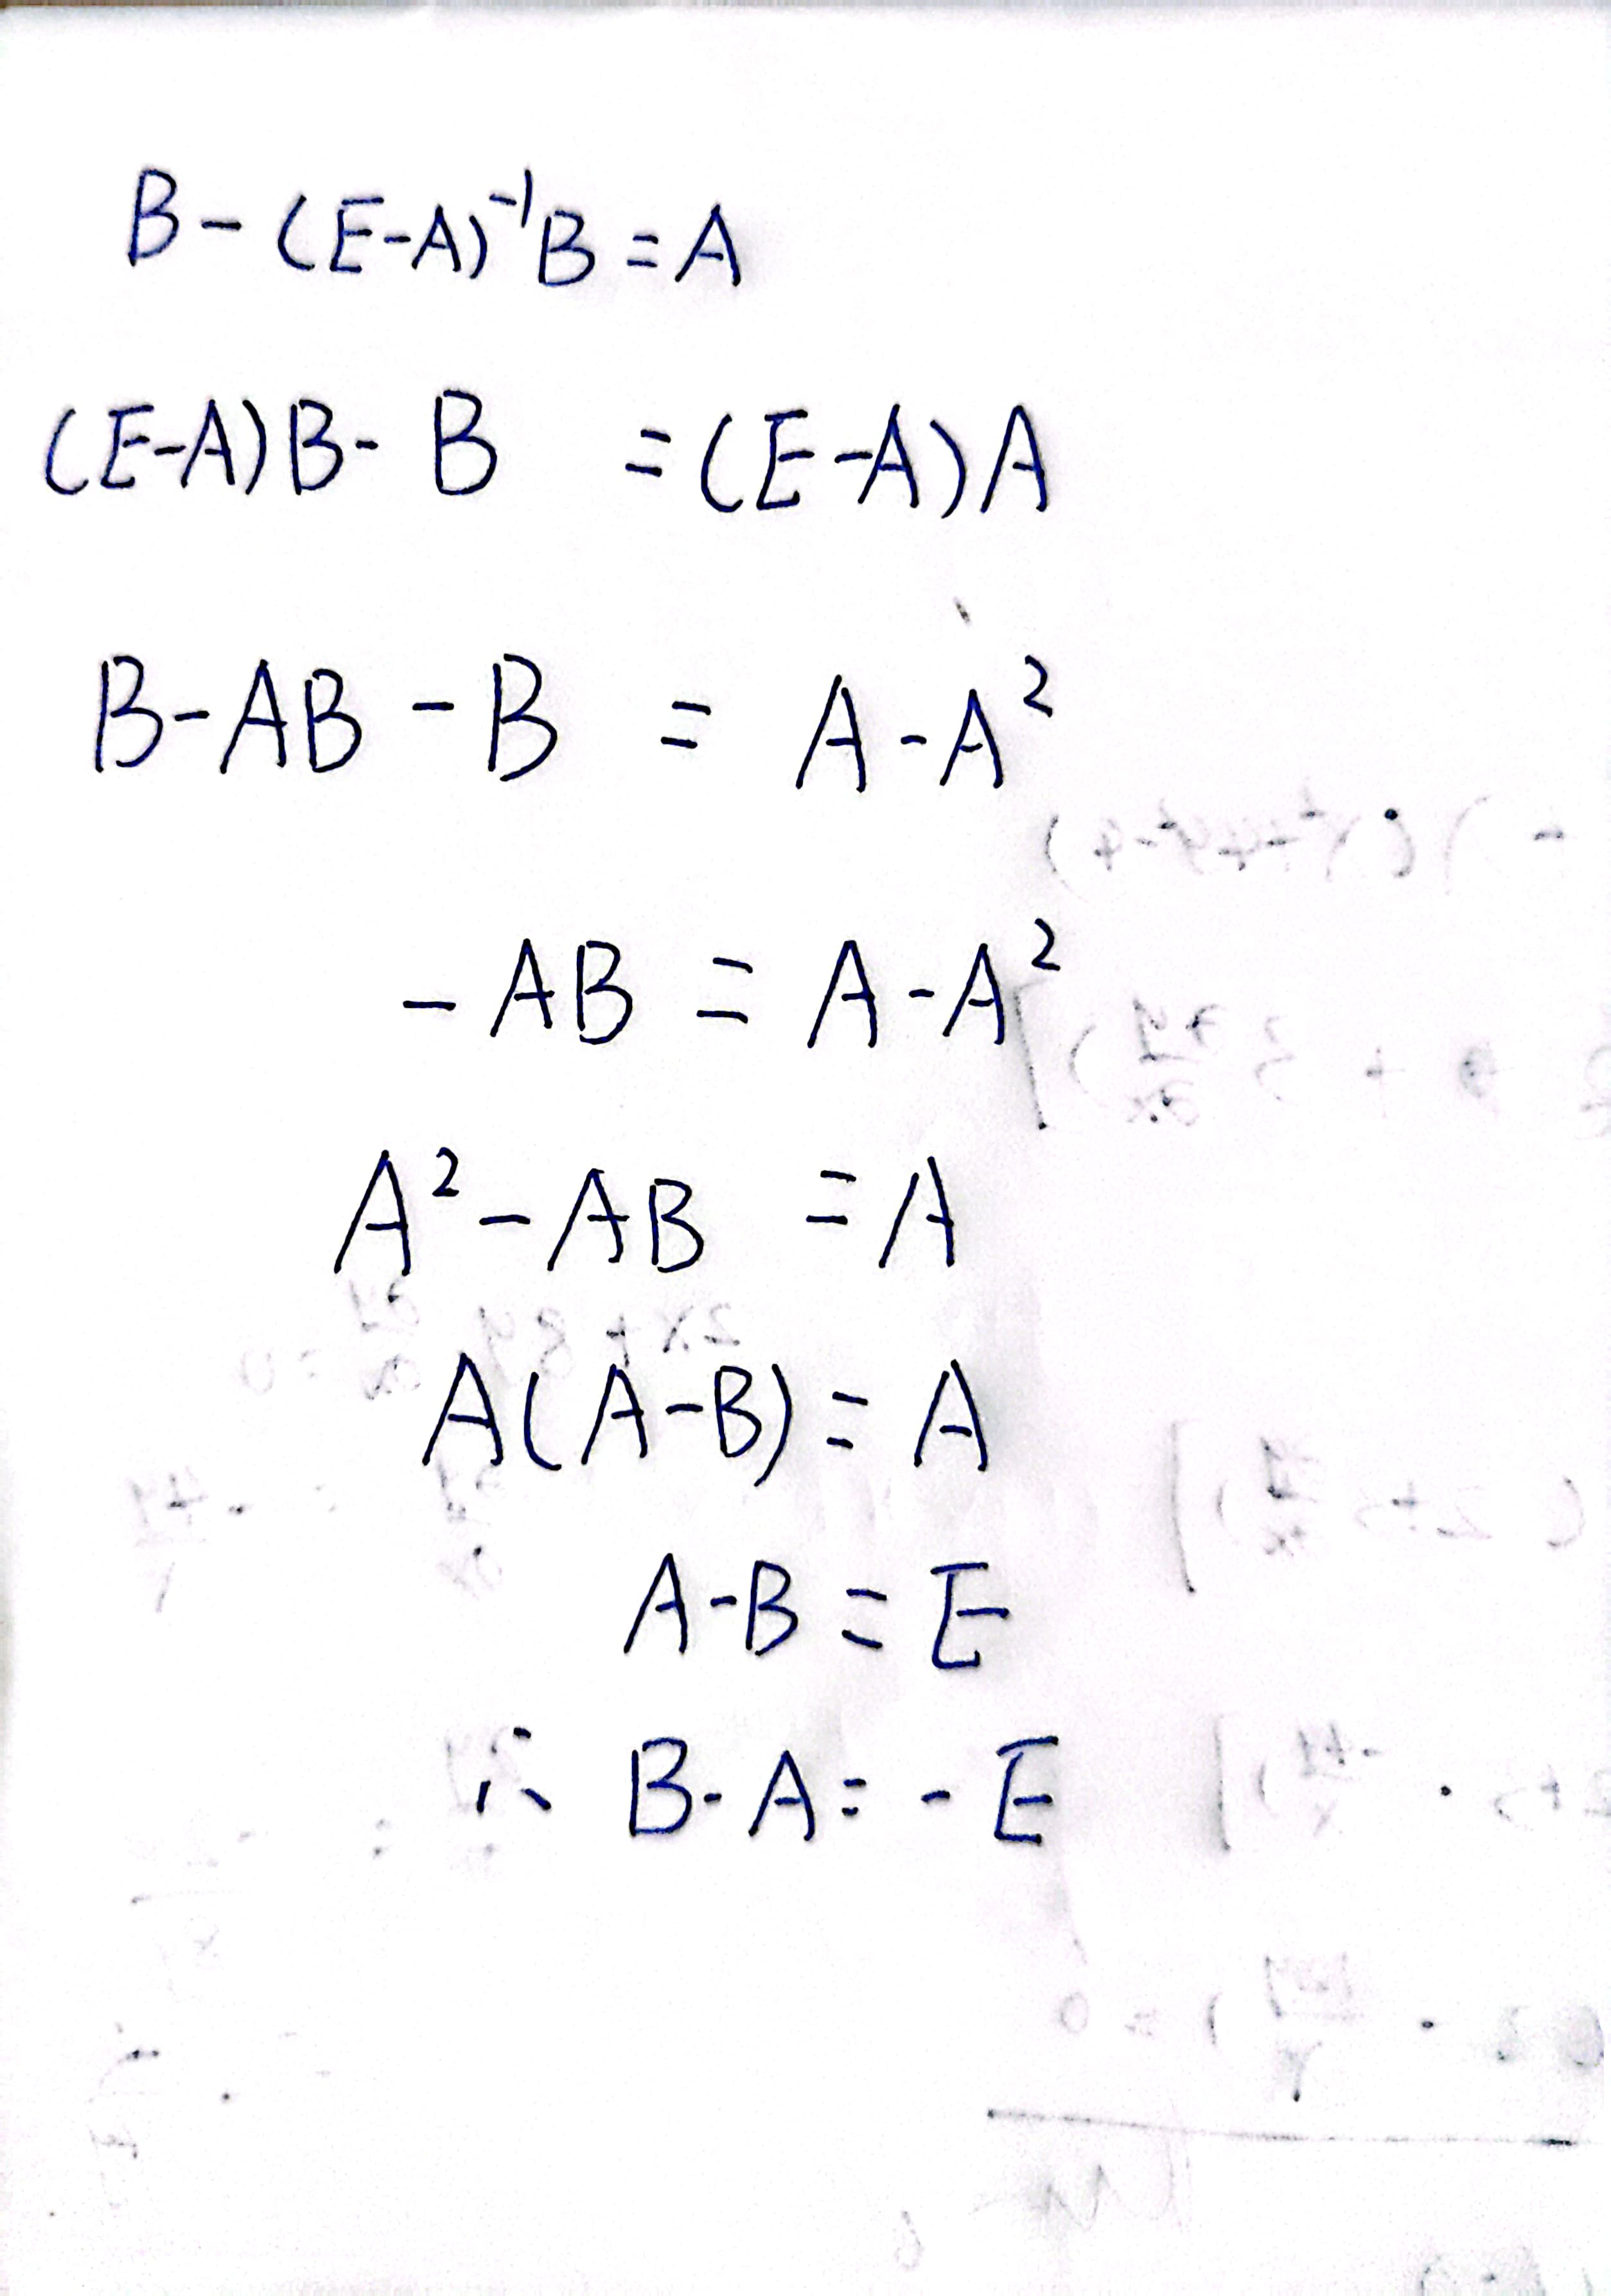 B-(E-A)⁻¹B=A
(E-A)B-B=(E-A)A
B-AB-B=A-A²
-AB=A-A²
A²-AB=A
A(A-B)=A
A-B=E
∴ B-A=-E